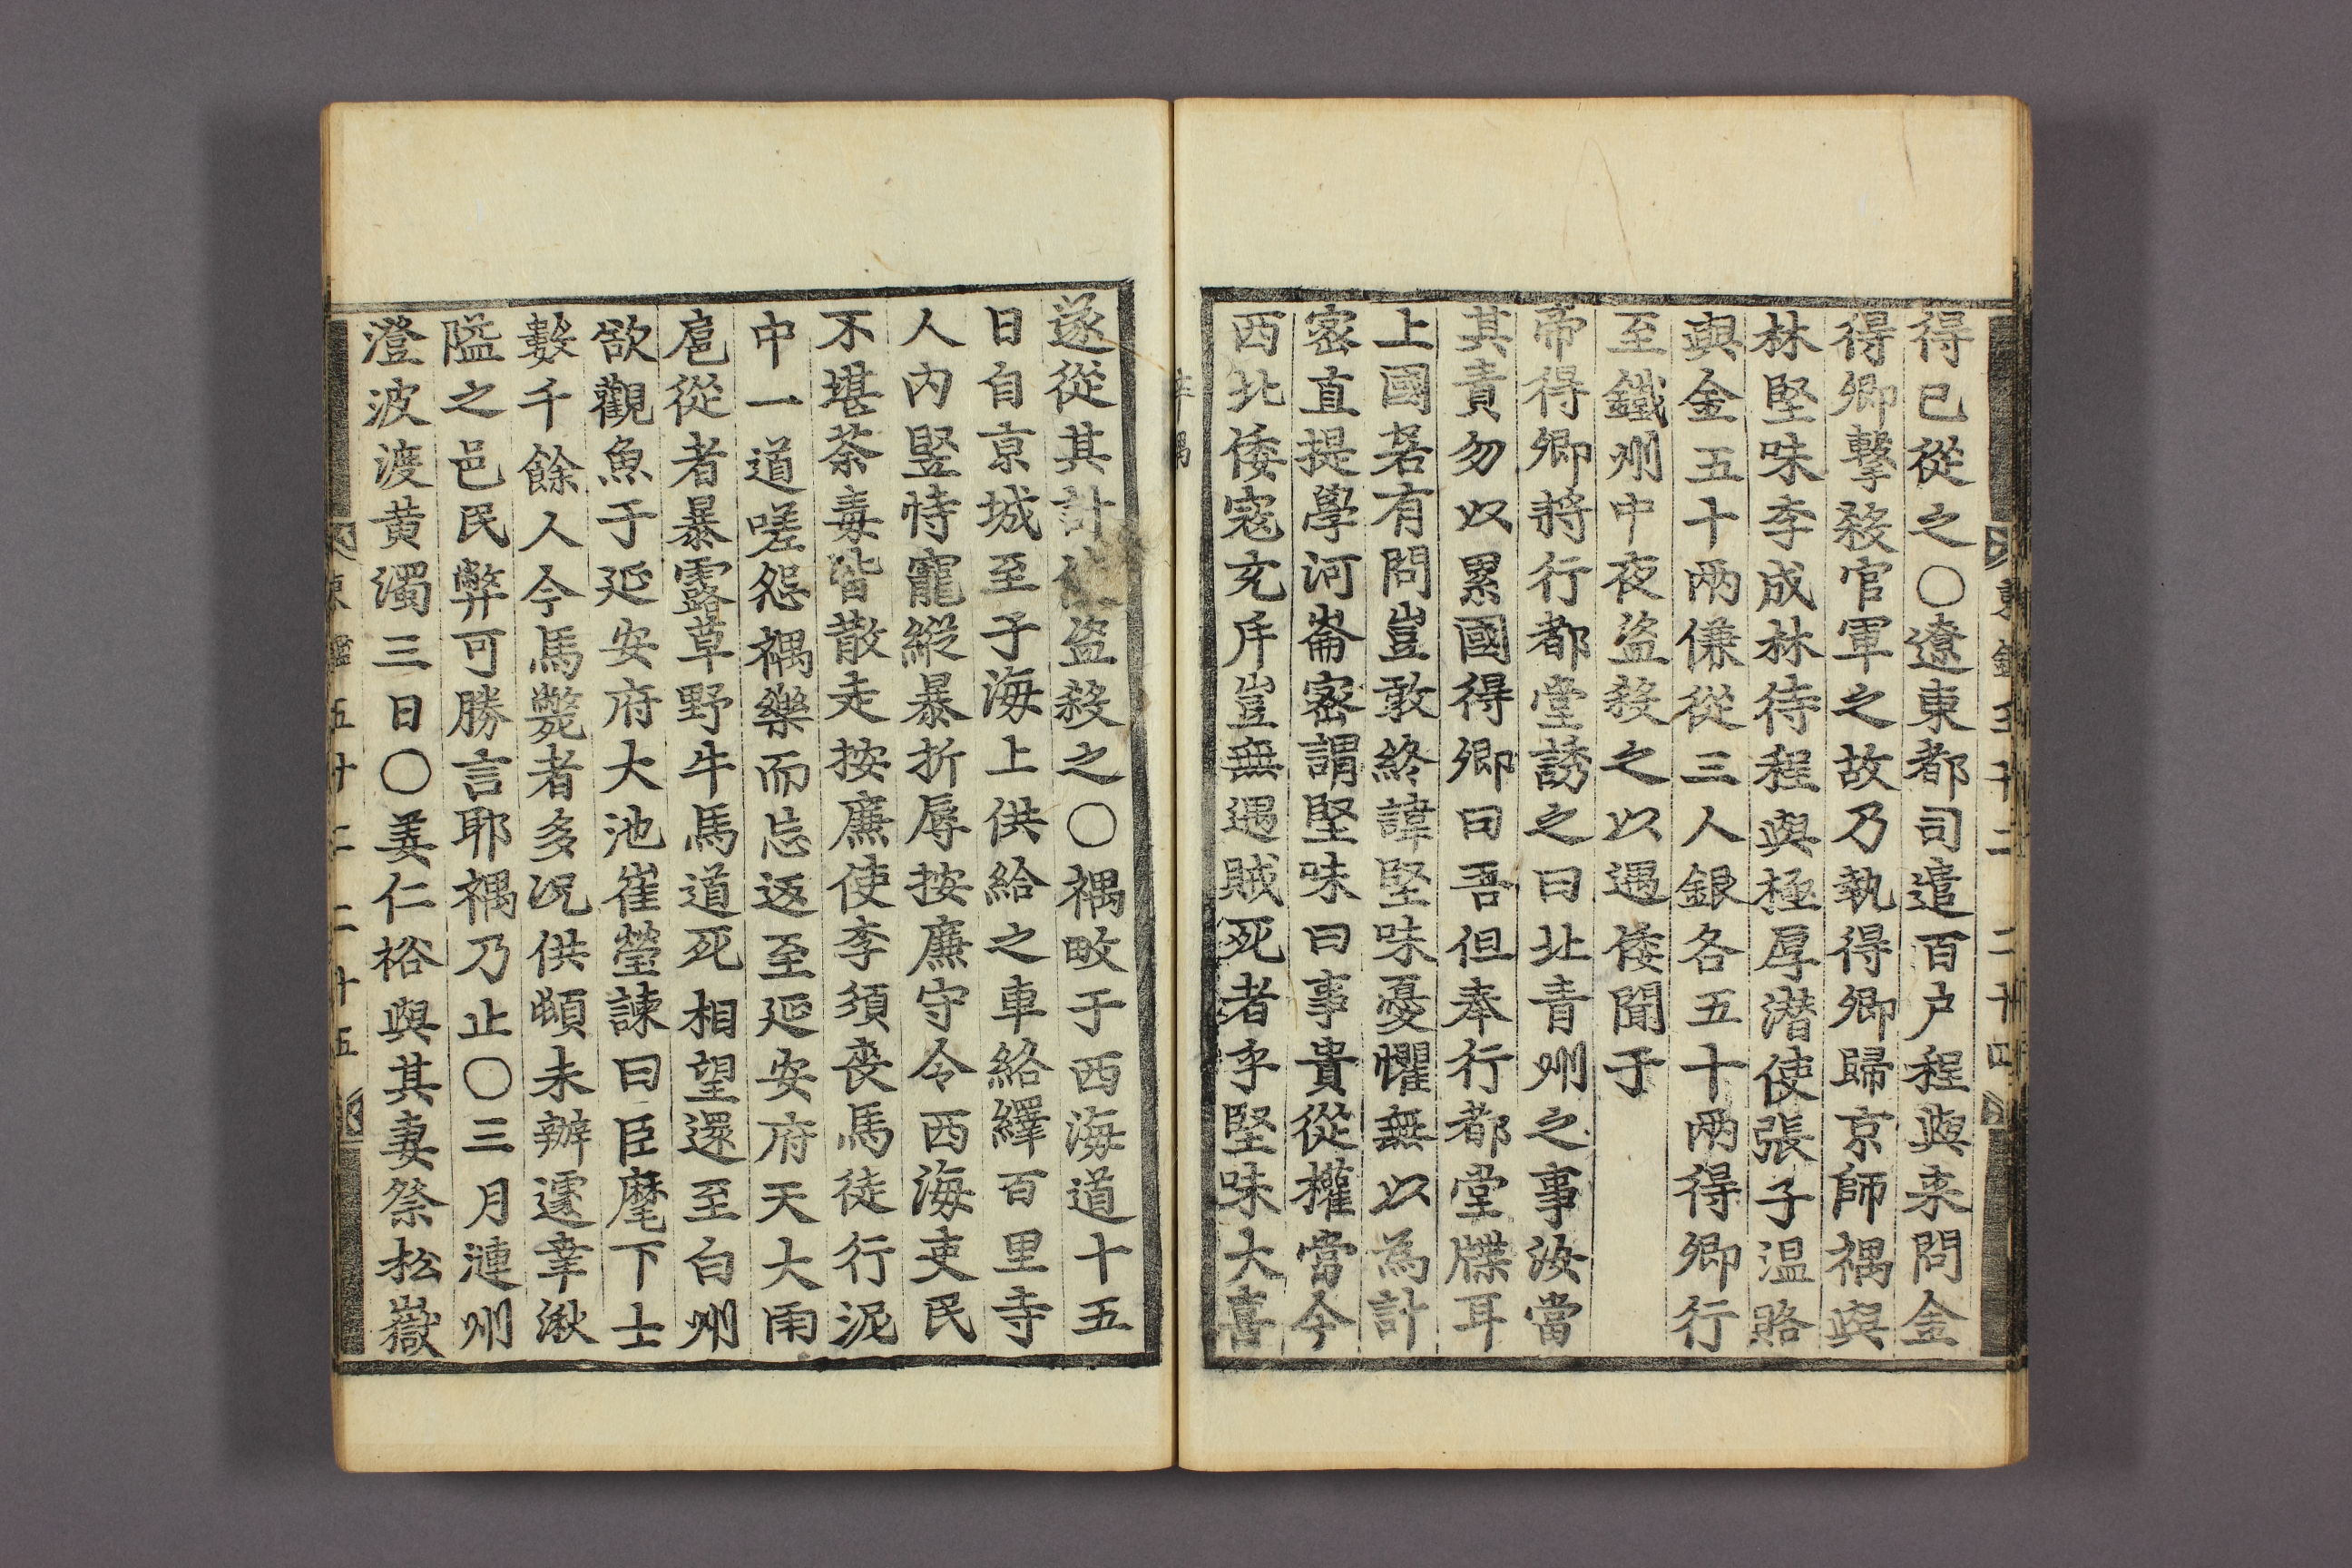 得已從之○遼東都司遣百户程與來問金
得卿擊殺官軍之故乃執得卿歸京師禑與
林堅味李成林待程與極厚潛使張子温賂
與金五十兩傔從三人銀各五十兩得卿行
至鐵州中夜盜殺之以遇倭聞于
帝得卿將行都堂誘之曰北青州之事汝當
其責勿以累國得卿曰吾但奉行都堂牒耳
上國若有問豈敢終諱堅味憂懼無以為計
密直提學河崙密謂堅味曰事貴從權當今
西北倭寇充斥豈無遇賊死者乎堅味大喜
辛禑
遂從其計盜殺之○禑畋于西海道十五
日自京城至于海上供給之車絡繹百里寺
人内竪恃寵縱暴折辱按廉守令西海吏民
不堪荼毒皆散走按廉使李須喪馬徒行泥
中一道嗟怨禑樂而忘返至延安府天大雨
扈從者暴露草野牛馬道死相望還至白州
欲觀魚于延安府大池崔瑩諫曰臣麾下士
數千餘人今馬斃者多况供頓未辦遽幸湫
隘之邑民弊可勝言耶禑乃止○三月漣州
澄波渡黄濁三日○姜仁裕與其妻祭松嶽
東鑑五十二 二十五